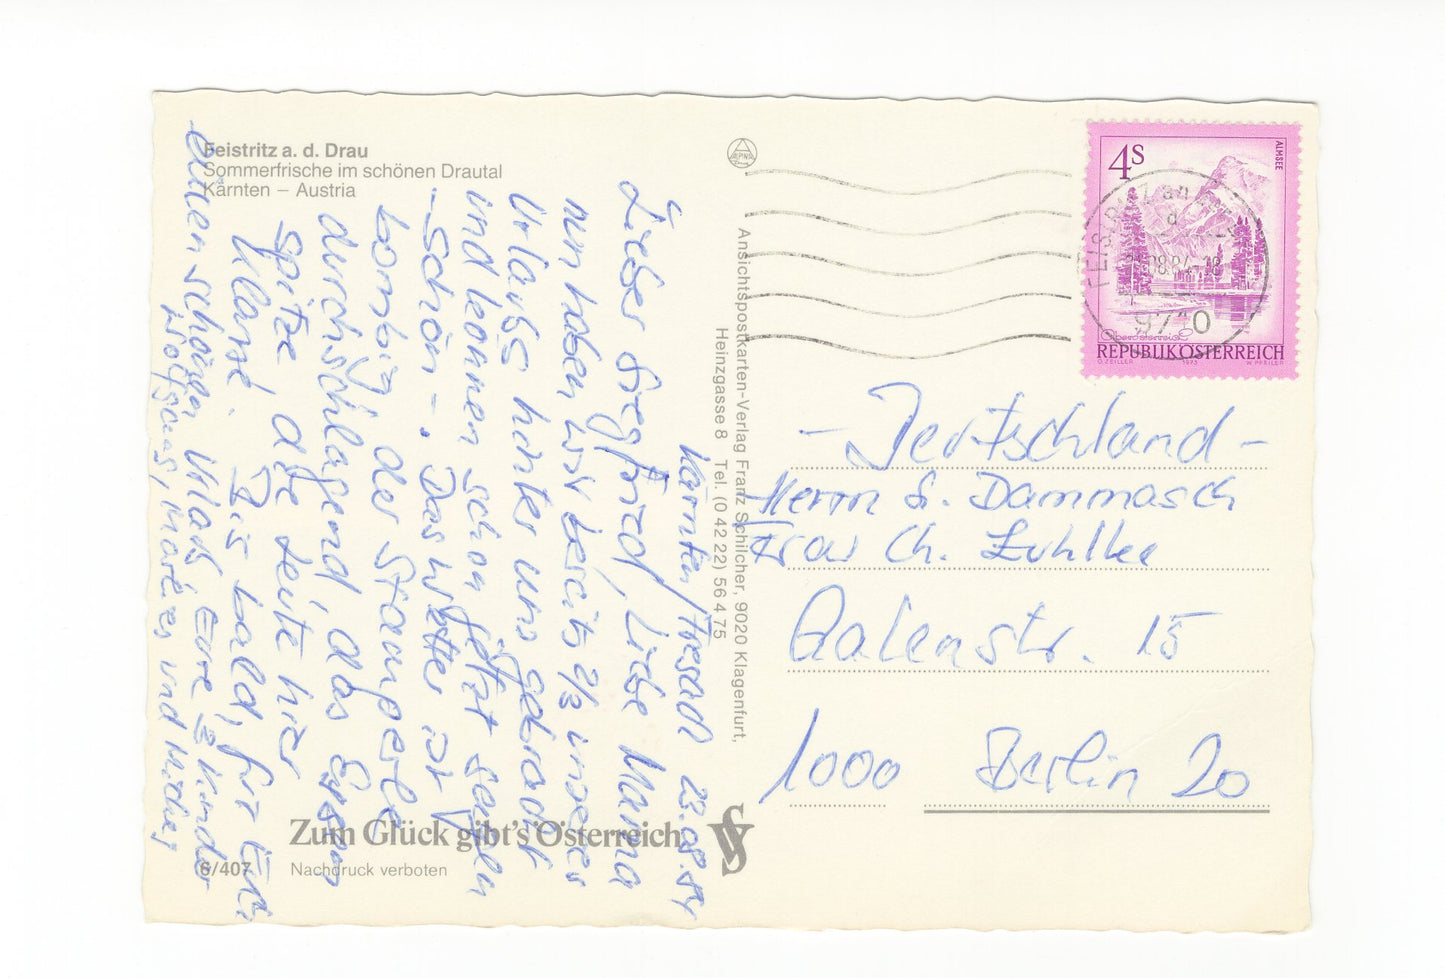 Feistritz a. d. Drau
Sommerfrische im schönen Drautal
Kärnten – Austria
Kärnten/Fresach 23.08.84
Lieber Siegfried, Liebe Mama
nun haben wir bereits 2/3 unseres
Urlaubs hinter uns gebracht
und können schon jetzt sagen
-schön-. Das Wetter ist
bombig der
durchschlagend, das Essen
Spitze alle Leute hier
klasse.
Bis bald, für Euch
einen schönen Urlaub Eure 3 Kinder
Wolfgang, und
Zum Glück gibt's Österreich
6/407
Nachdruck verboten
Ansichtspostkarten-Verlag Franz Schilcher, 9020 Klagenfurt,
Heinzgasse 8 Tel. (0 42 22) 56 4 75
4S
ALMSEE
9710
REPUBLIK ÖSTERREICH
O. ZEILER 1973 W. PFEILER
- Deutschland -
Herrn S. Dammasch
Frau Ch. Luhlke
Aalenstr. 15
1000 Berlin 20